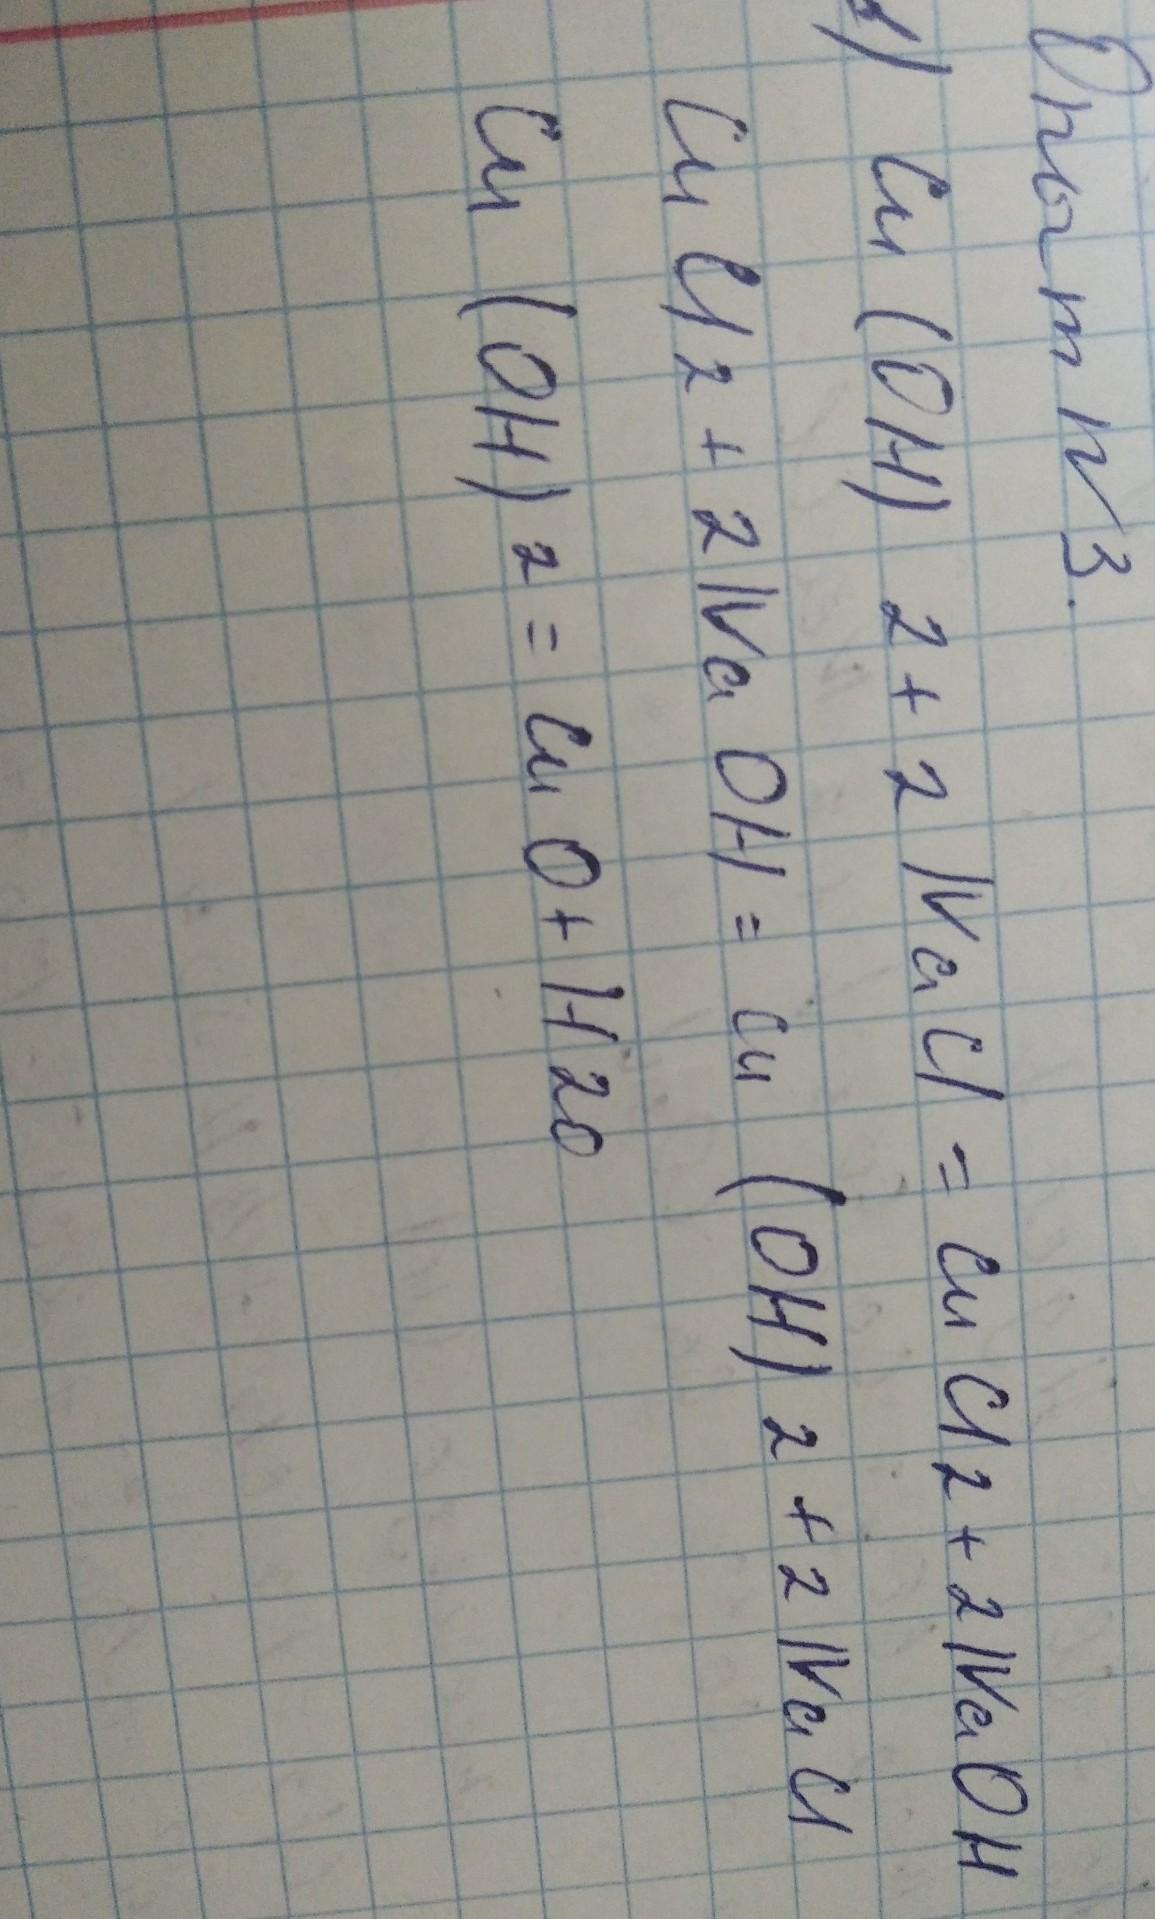 Опыт №3.
1) Cu (OH) 2 + 2 NaCl = CuCl2 + 2NaOH
CuCl2 + 2NaOH = Cu (OH) 2 + 2NaCl
Cu (OH) 2 = CuO + H2O